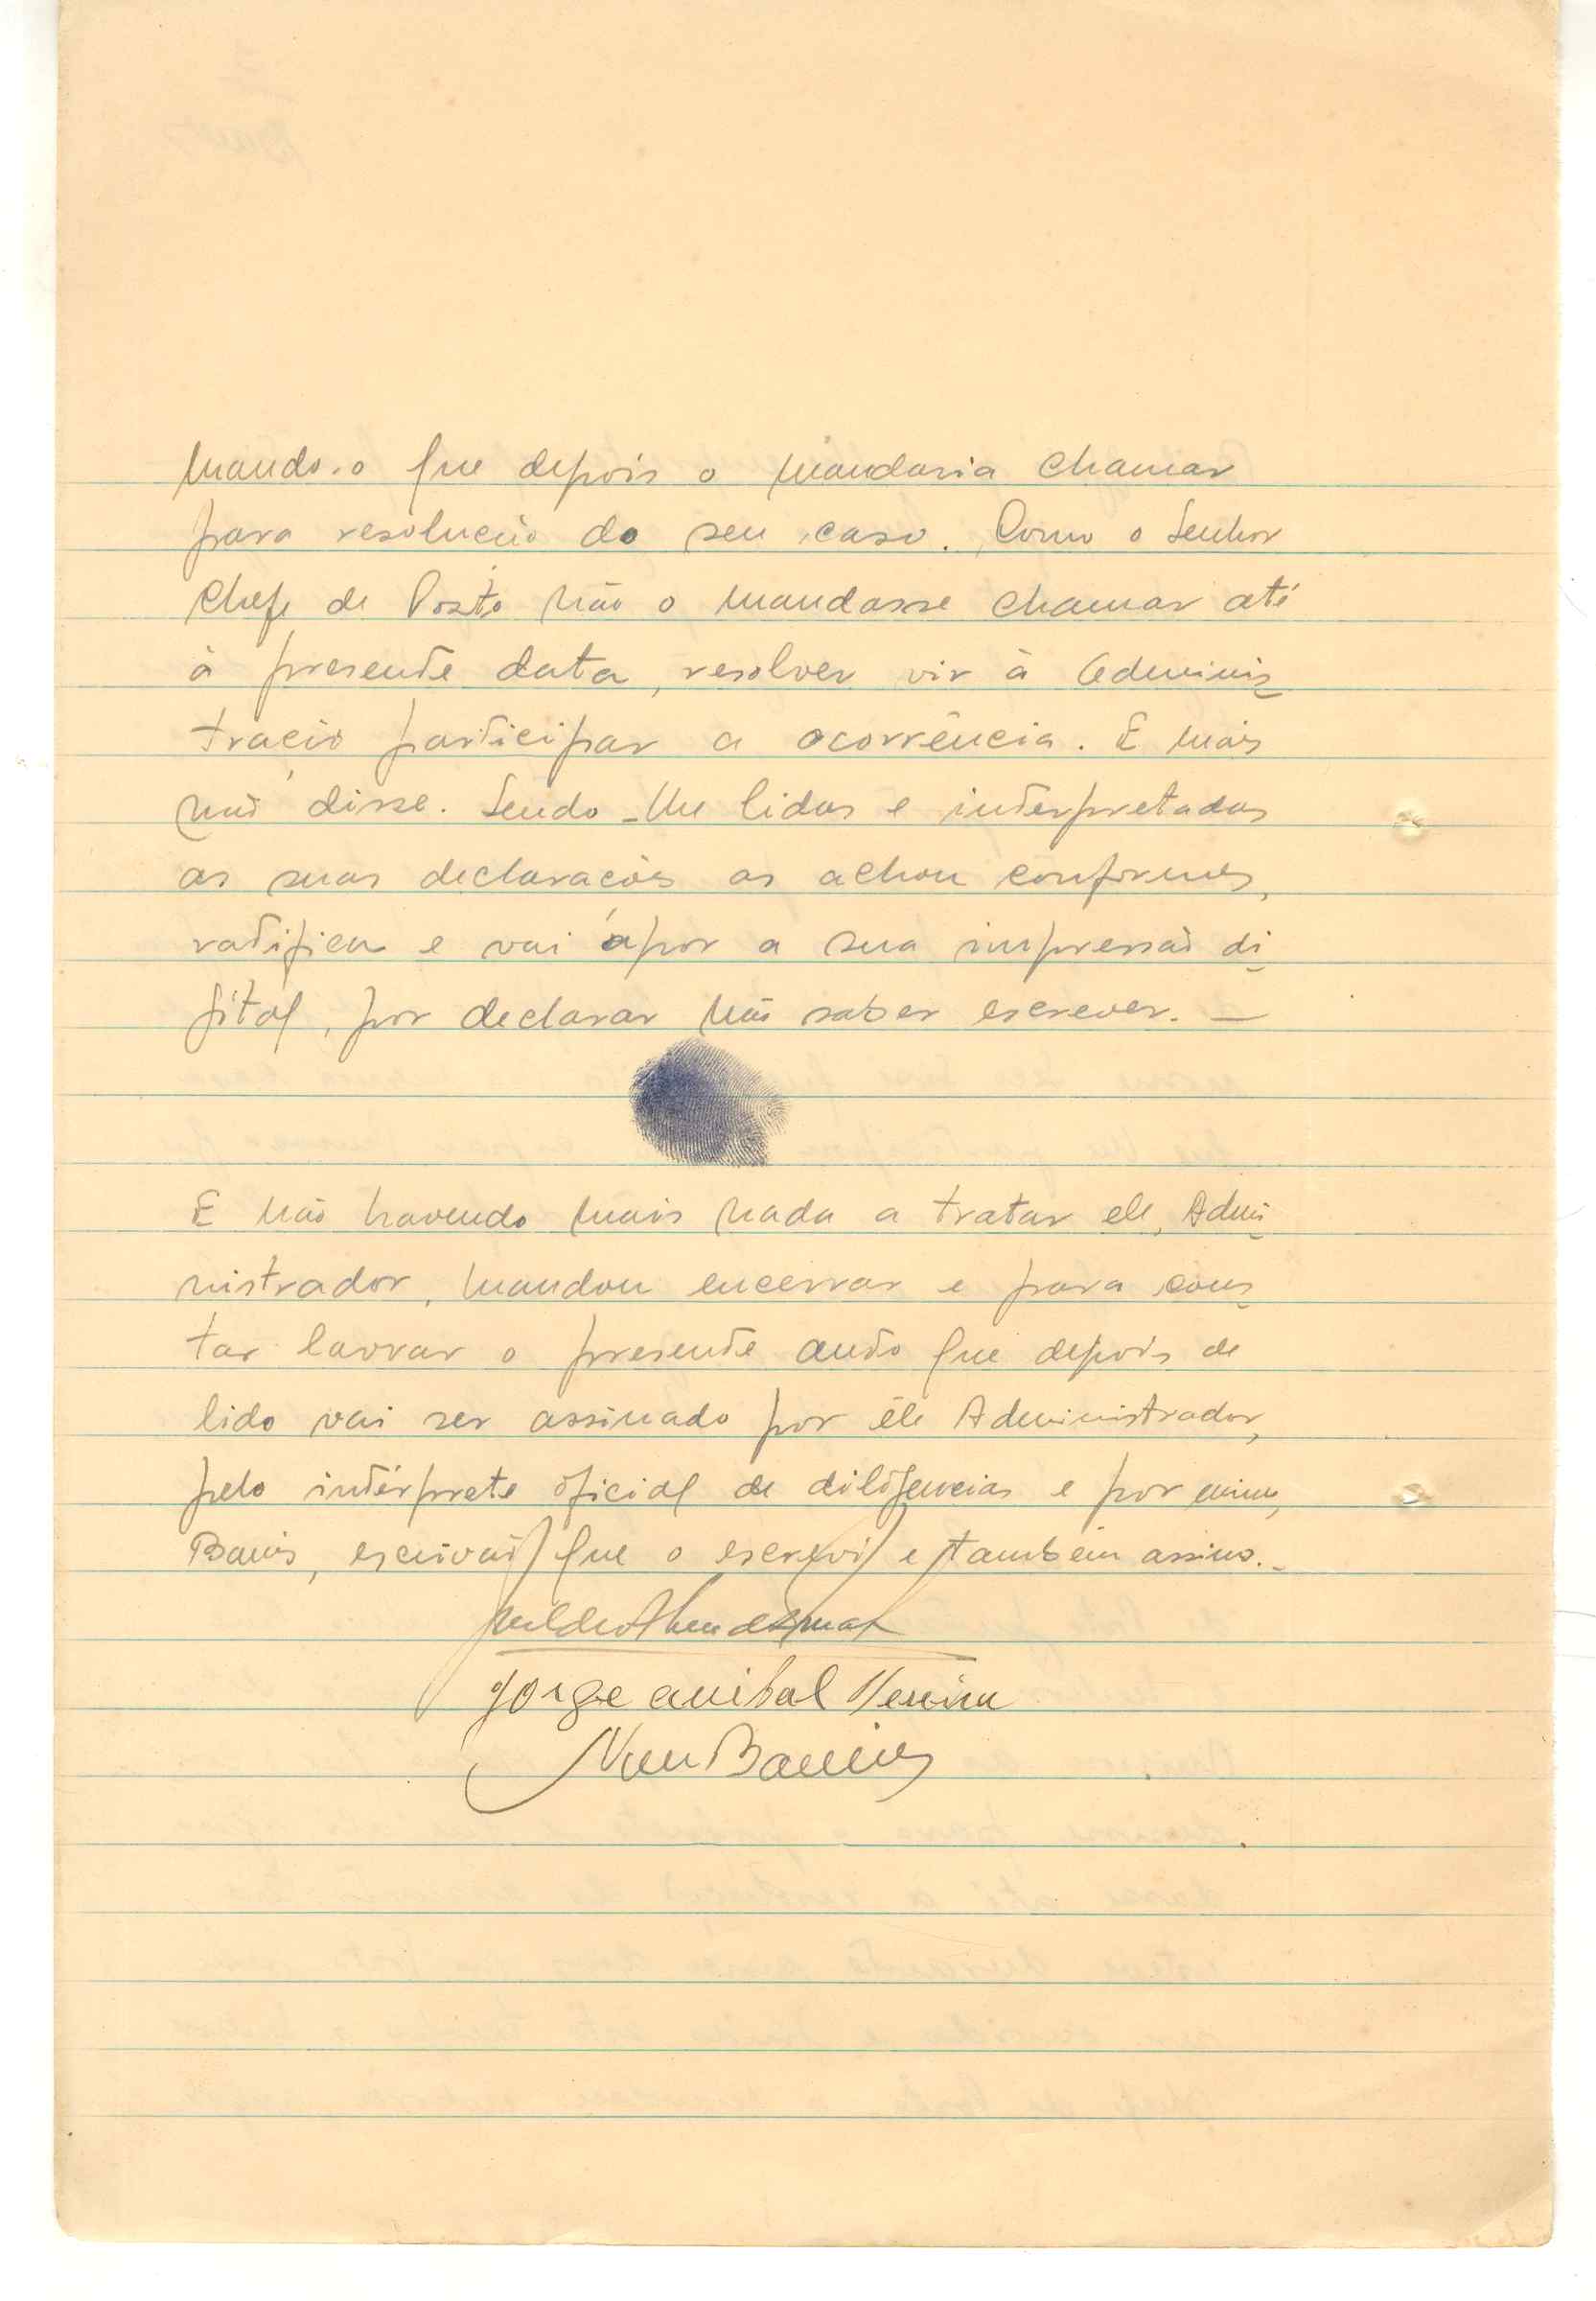 mando-o que depois o mandaria chamar
para resolução do seu caso. Como o Senhor
Chefe de Posto não o mandasse chamar até
à presente data, resolveu vir à Adminis
tração participar a ocorrência. E mais
não disse. Sendo-lhe lidas e interpretadas
as suas declarações as achou conformes,
ratifica e vai apôr a sua impressão di
gital, por declarar não saber escrever. —
E não havendo mais nada a tratar ele, Admi
nistrador, mandou encerrar e para cons
tar lavrar o presente auto que depois de
lido vai ser assinado por êle Administrador,
pelo intérprete oficial de diligencias e por mim,
escrivão que o escrevi e também assino.-
Jorge Anibal